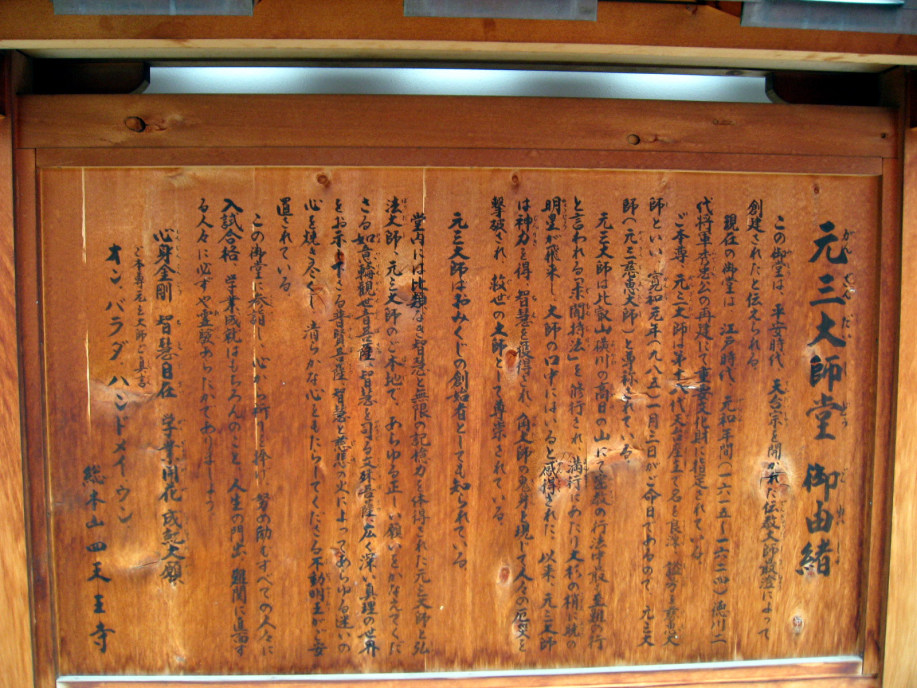 元三大師堂 御由緒
この御堂は、平安時代、天台宗を開かれた伝教大師最澄によって
創建されたと伝えられる。
現在の御堂は、江戸時代、元和年間(一六一五〜一六二四)徳川二
代将軍秀忠公の再建にて重要文化財に指定されている。
ご本尊、元三大師は第十八代天台座主で名を良源、諡号を慈恵大
師といい、寛和元年(九八五)一月三日がご命日であるので、元三大
師(元三慈恵大師)と尊称されている。
元三大師は比叡山横川の高日の山にて密教の行法中最も至難の行
と言われる「求聞持法」を修行され、満行にあたり大杉の梢に暁の
明星が飛来し、大師の口中にはいると感得された。以来、元三大師
は神力を得、智慧を獲得され、角大師の鬼身を現じて人々の厄災を
撃破され、救世の大師として尊崇されている。
元三大師はおみくじの創始者としても知られている。
堂内には比類なき智慧と無限の記憶力を体得された元三大師と弘
法大師、元三大師のご本地で、あらゆる正しい願いをかなえてくだ
さる如意輪観世音菩薩、智慧を司る文殊菩薩、広く深い真理の世界
をお示し下さる普賢菩薩、智慧と慈悲の火によってあらゆる迷いの
心を焼き尽くし、清らかな心をもたらしてくださる不動明王がご安
置されている。
この御堂に参詣し、心からの祈りを捧げ、努め励むすべての人々に
入試合格、学業成就はもちろんのこと、人生の門出、難関に直面す
る人々に必ずや霊験あらたかでありましょう。
心身金剛 智慧自在 学業開花 成就大願
ご本尊元三大師ご真言
オン バラダ ハンドメイ ウン
総本山四天王寺